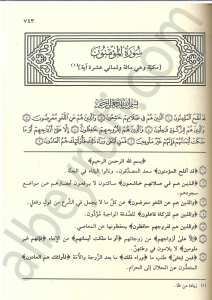 ٧٤٣
سورة المؤمنون
[مكية وهي مائة وثماني عشرة آية](١)
بسم الله الرحمن الرحيم
قد أفلح المؤمنون الذين هم في صلاتهم خاشعون والذين هم عن اللغو معرضون
والذين هم للزكاة فاعلون والذين هم لفروجهم حافظون إلا على أزواجهم أو ما
ملكت أيمانهم فإنهم غير ملومين فمن ابتغى وراء ذلك فأولئك هم العادون
﴿بسم الله الرحمن الرحيم﴾
﴿قد أفلح المؤمنون﴾ سعد المصدقون، ونالوا البقاء في الجنة.
﴿الذين هم في صلاتهم خاشعون﴾ ساكنون لا يرفعون أبصارهم عن مواضع
سجودهم.
﴿والذين هم عن اللغو معرضون﴾ عن كل ما لا يجمل في الشرع من قول وفعل.
﴿والذين هم للزكاة فاعلون﴾ للصدقة الواجبة مؤدون.
﴿والذين هم لفروجهم حافظون﴾ يحفظونها عن المعاصي.
﴿إلا على أزواجهم﴾ من زوجاتهم ﴿أو ما ملكت أيمانهم﴾ من الإماء ﴿فإنهم غير
ملومين﴾ لا يلامون في وطئهن.
﴿فمن ابتغى﴾ طلب ما ﴿وراء ذلك﴾ ما بعد الزوجة والأمة ﴿فأولئك هم العادون﴾
المتعدون عن الحلال إلى الحرام.
(١) زيادة من ظا.